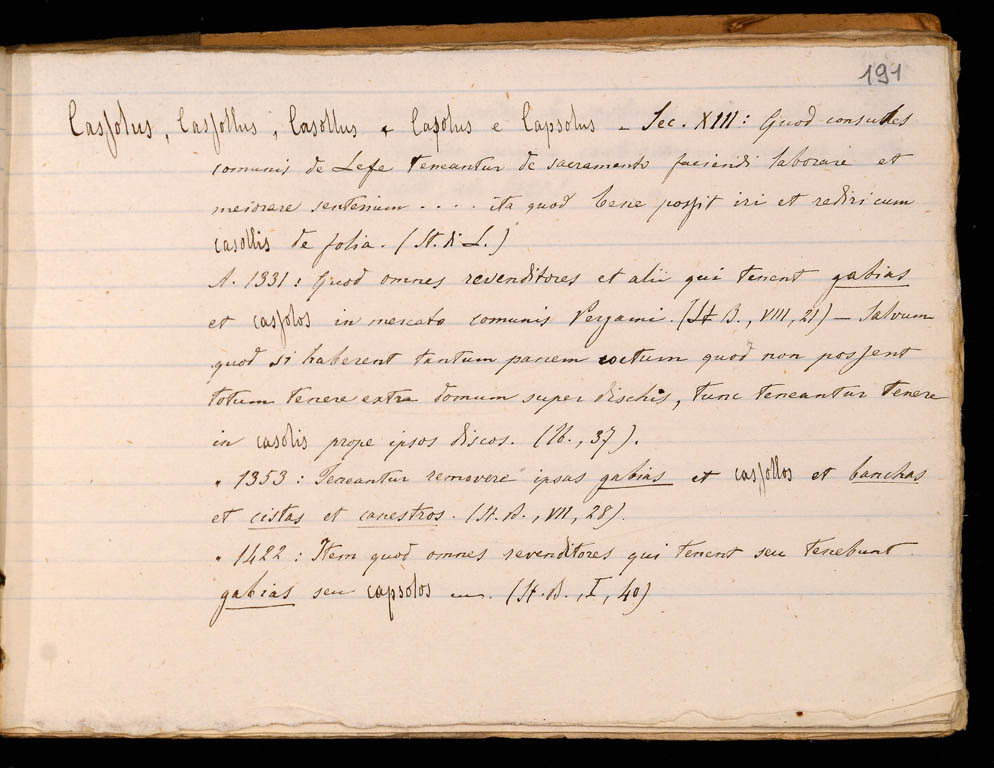 191
Cassolus, Cassollus, Casollus, Casolus e Capsolus – Sec. XIII: Quod consules
comunis de Lefe teneantur de sacramento faciendi laborare et
meiorare senterium . . . . ita quod bene possit iri et rediri cum
casollis de folia. (St. di L.)
A. 1331: Quod omnes revenditores et alii qui tenent gabias
et cassolos in mercato comunis Pergami. (St B., VIII, 21) – Salvum
quod si haberent tantum panem coctum quod non possent
totum tenere extra domum super dischis, tunc teneantur tenere
in casolis prope ipsos discos. (Ib., 37).
" 1353: Teneantur removere ipsas gabias et cassollos et banchas
et cistas et canestros. (St. B., VII, 28).
" 1422: Item quod omnes revenditores qui tenent seu tenebunt
gabias seu capsolos (St. B., I, 40)